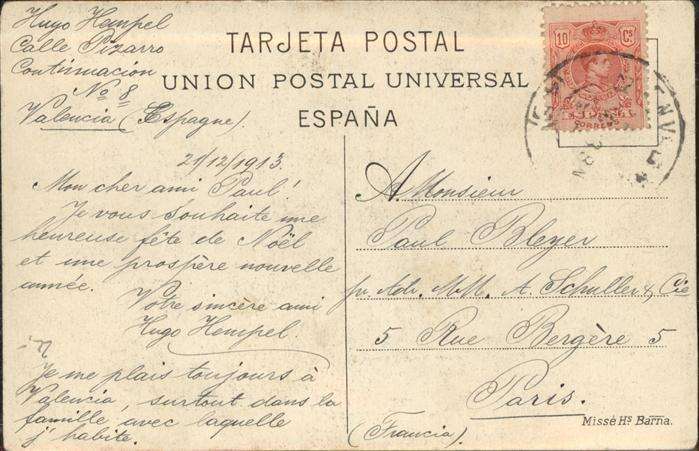 Hugo Hempel
Calle Pizarro
Continuacion
No 8
Valencia (Espagne).
TARJETA POSTAL
UNION POSTAL UNIVERSAL
ESPAÑA
10 Cs
CORREOS
21/12/1913.
Mon cher ami Paul!
Je vous souhaite une
heureuse fête de Noël
et une prospère nouvelle
année.
Votre sincère ami
Hugo Hempel.
Je me plais toujours à
Valencia, surtout dans la
famille avec laquelle
j'habite.
A. Monsieur
Paul Bleyer
pr Adr. M.M. A. Schuller & Cie
5 Rue Bergère 5
Paris.
(Francia)
Missé Hs Barna.